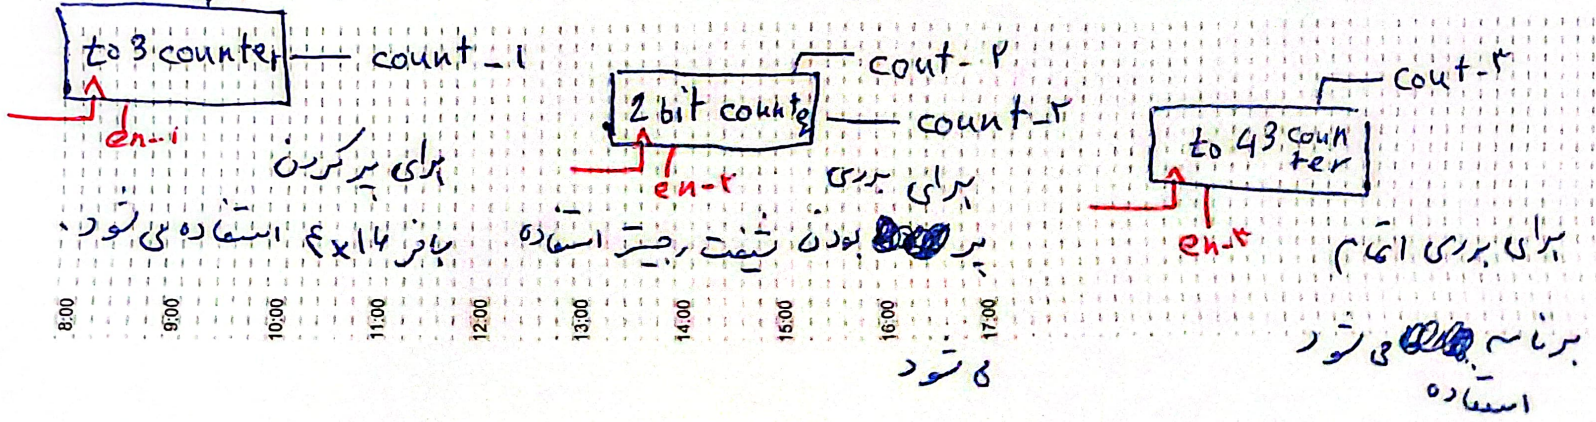 to 3 counter
count_1
en-1
برای پر کردن
بافر 4x16 استفاده می‌شود.
2 bit counter
cout-۲
count_۲
en-۲
برای بررسی
پر بودن شیفت رجیستر استفاده
می شود
to 43 coun
ter
cout-۳
en-۳
برای بررسی اتمام
برنامه می شود
استفاده
8:00 9:00 10:00 11:00 12:00 13:00 14:00 15:00 16:00 17:00